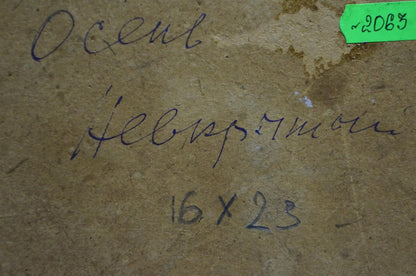 Осень
~2063
Некрытый
16 х 23